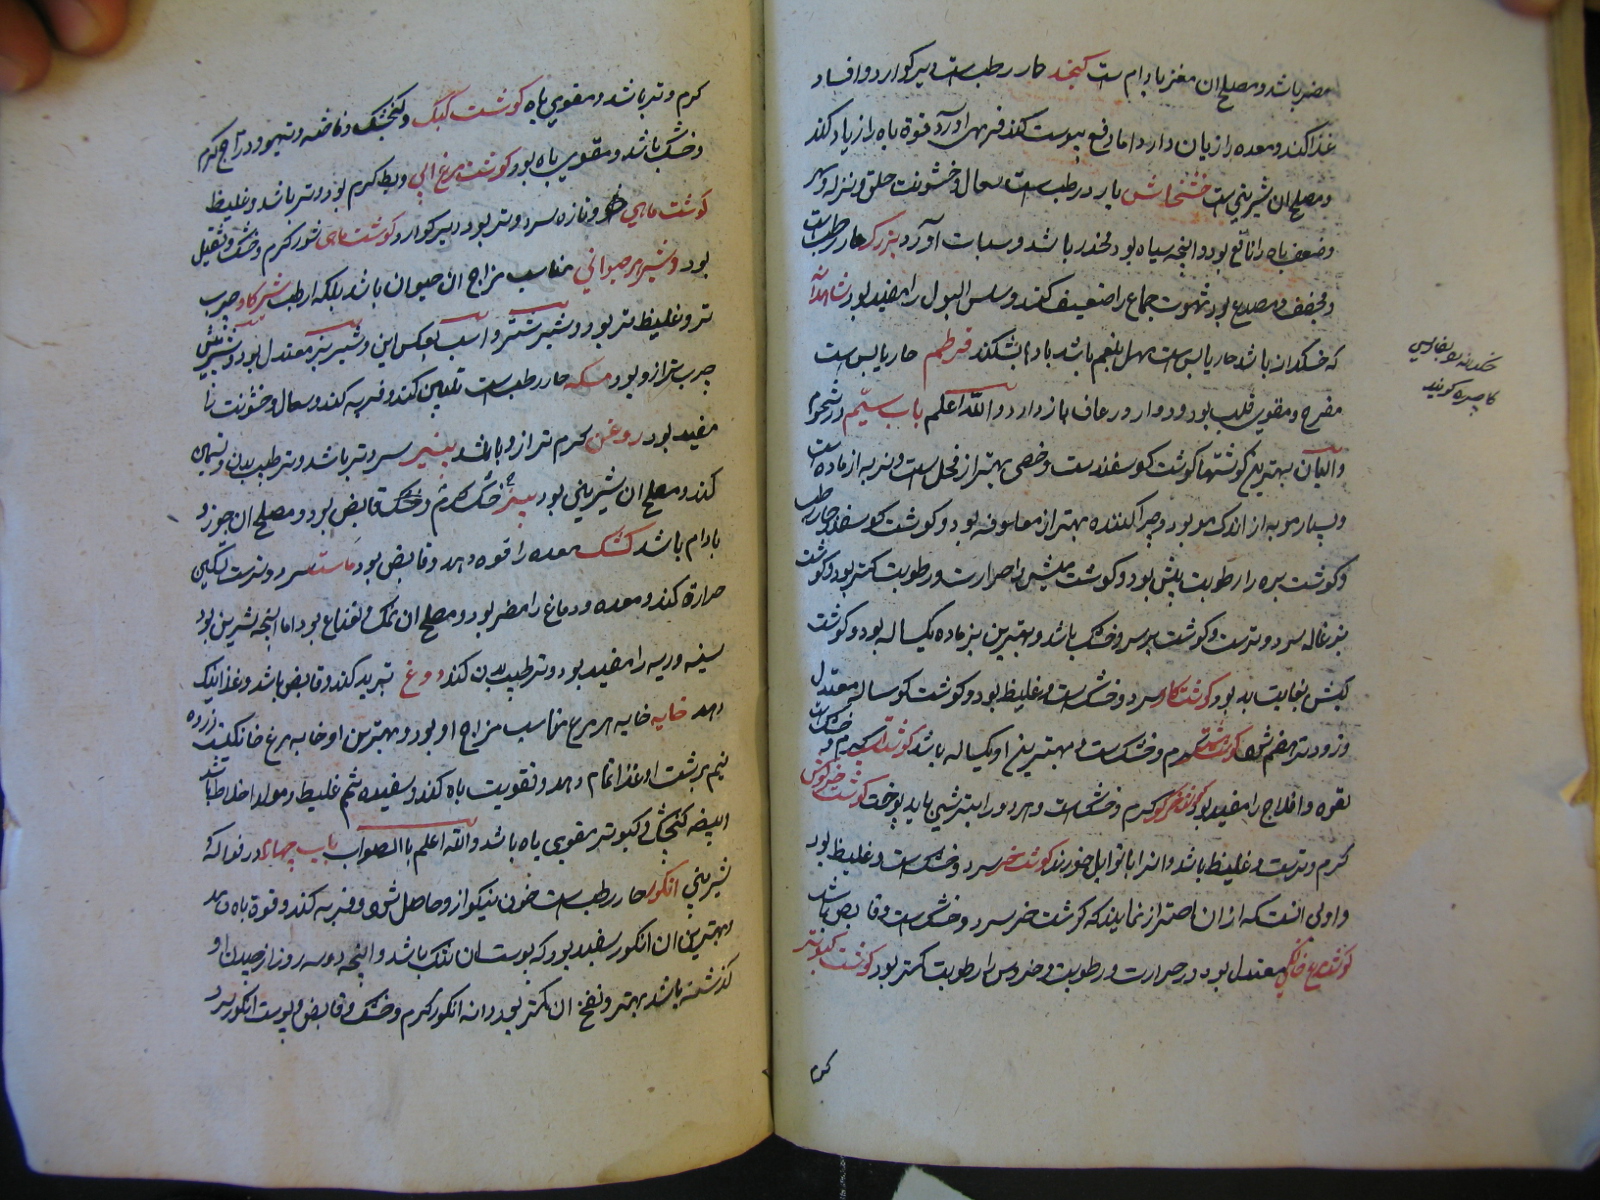 مضر باشد و مصلح ان مغز بادام ست کنجد حار رطب ست دیر کوارد و افساد
غذا کند و معده را زیان دارد اما دفع یبوست کند فربهی اورد قوة باه را زیاد کند
و مصلح ان شیرینی ست خشخاش بارد رطب ست سعال و خشونت حلق و نزله و سهر
و ضعف باه را نافع بود و انچه سیاه بود مخدر باشد و سبات آورد بزرک حار رطب ست
و مجفف و مصدع بود شهوت جماع را ضعیف کند و سلس البول را مفید بود شاهدانه
که خسکدانه باشد حار یابس ست مسهل بلغم باشد بادها بشکند قرطم حار یابس ست
مفرح و مقوی قلب بود و دوار و رعاف باز دارد و الله اعلم باب سیّم در لحوم
و البان بهترین کوشتها کوشت کوسفندست و خصی بهتر از فحل ست و نر به از ماده است
و بسیار مو به از اندک مو بود و چراکننده بهتر از معلوفه بود و کوشت کوسفند حار رطب
و کوشت بره را رطوبت بیش بود و کوشت میش را حرارت و رطوبت کمتر بود و کوشت
بزغاله سرد و ترست و کوشت بز سرد و خشک باشد و بهترین بز ماده یکساله بود و کوشت
کبش بغایت بد بود کوشت کاو سرد و خشک ست و غلیظ بود و کوشت کوساله معتدل
و زودتر هضم شود کوشت شتر کرم و خشک ست و بهترین او یکساله باشد کوشت اسب کرم و خشک ست
لقوه و افلاج را مفید بود کوشت کرم و خشک ست و هر دو را بترشی باید پوخت کوشت خرکوش
کرم و ترست و غلیظ باشد و انرا با توابل خورند کوشت خر سرد و خشک ست و غلیظ بود
و اولی انست که از ان احتراز نمایند که کوشت خر سرد و خشک ست و قابض باشد
کوشت مرغ خانکی معتدل بود در حرارت و رطوبت و خروس را رطوبت کمتر بود کوشت کبوتر
کرم
بفارسی
کاچره کویند
کرم و تر باشد و مقوی باه کوشت کبک و کنجشک و فاخته و تیهو و دراج کرم
و خشک باشد و مقوی باه بود کوشت مرغ ابی و بط کرم بود و تر باشد و غلیظ
کوشت ماهی تازه سرد و تر بود دیر کوارد و کوشت ماهی شور کرم و خشک و ثقیل
بود و شیر هر حیوانی مناسب مزاج ان حیوان باشد بلکه ارطب شیر کاو چرب
تر و غلیظ تر بود و شیر شتر و اسب بعکس این و شیر بز معتدل بود و شیر میش
چرب تر ازو بود مسکه حار رطب ست تلیین کند و فربه کند و سعال و خشونت را
مفید بود روغن کرم تر ازو باشد پنیر سرد تر باشد و ترطیب بدن و تسمین
کند و مصلح ان شیرینی بود پنیر خشک کرم و خشک قابض بود و مصلح ان جوز و
بادام باشد کشک معده را قوه دهد و قابض بود ماست سرد و ترست تسکین
حرارة کند و معده و دماغ را مضر بود و مصلح ان نمک و نعناع بود اما انچه شیرین بود
سینه و ریه را مفید بود و ترطیب بدن کند دوغ تبرید کند و قابض باشد و غذا اندک
دهد خایه خایه هر مرغ مناسب مزاج او بود و بهترین او خایه مرغ خانکیست زرده
نیم برشت او غذا تمام دهد و تقویت باه کند و سفیده شم غلیظ و مولد اخلاط باشد
البیضه کنجشک و کبوتر مقوی باه باشد و الله اعلم بالصواب باب چهارم در فواکه
شیرینی انکور حار رطب ست خون نیکو ازو حاصل شود و فربه کند و قوة باه دهد
و بهترین ان انکور سفید بود که پوست ان تنک باشد و انچه دو سه روز از چیدن او
کذشته باشد بهتر و نفخ ان کمتر بود دانه انکور کرم و خشک و قابض و پوست انکور سرد